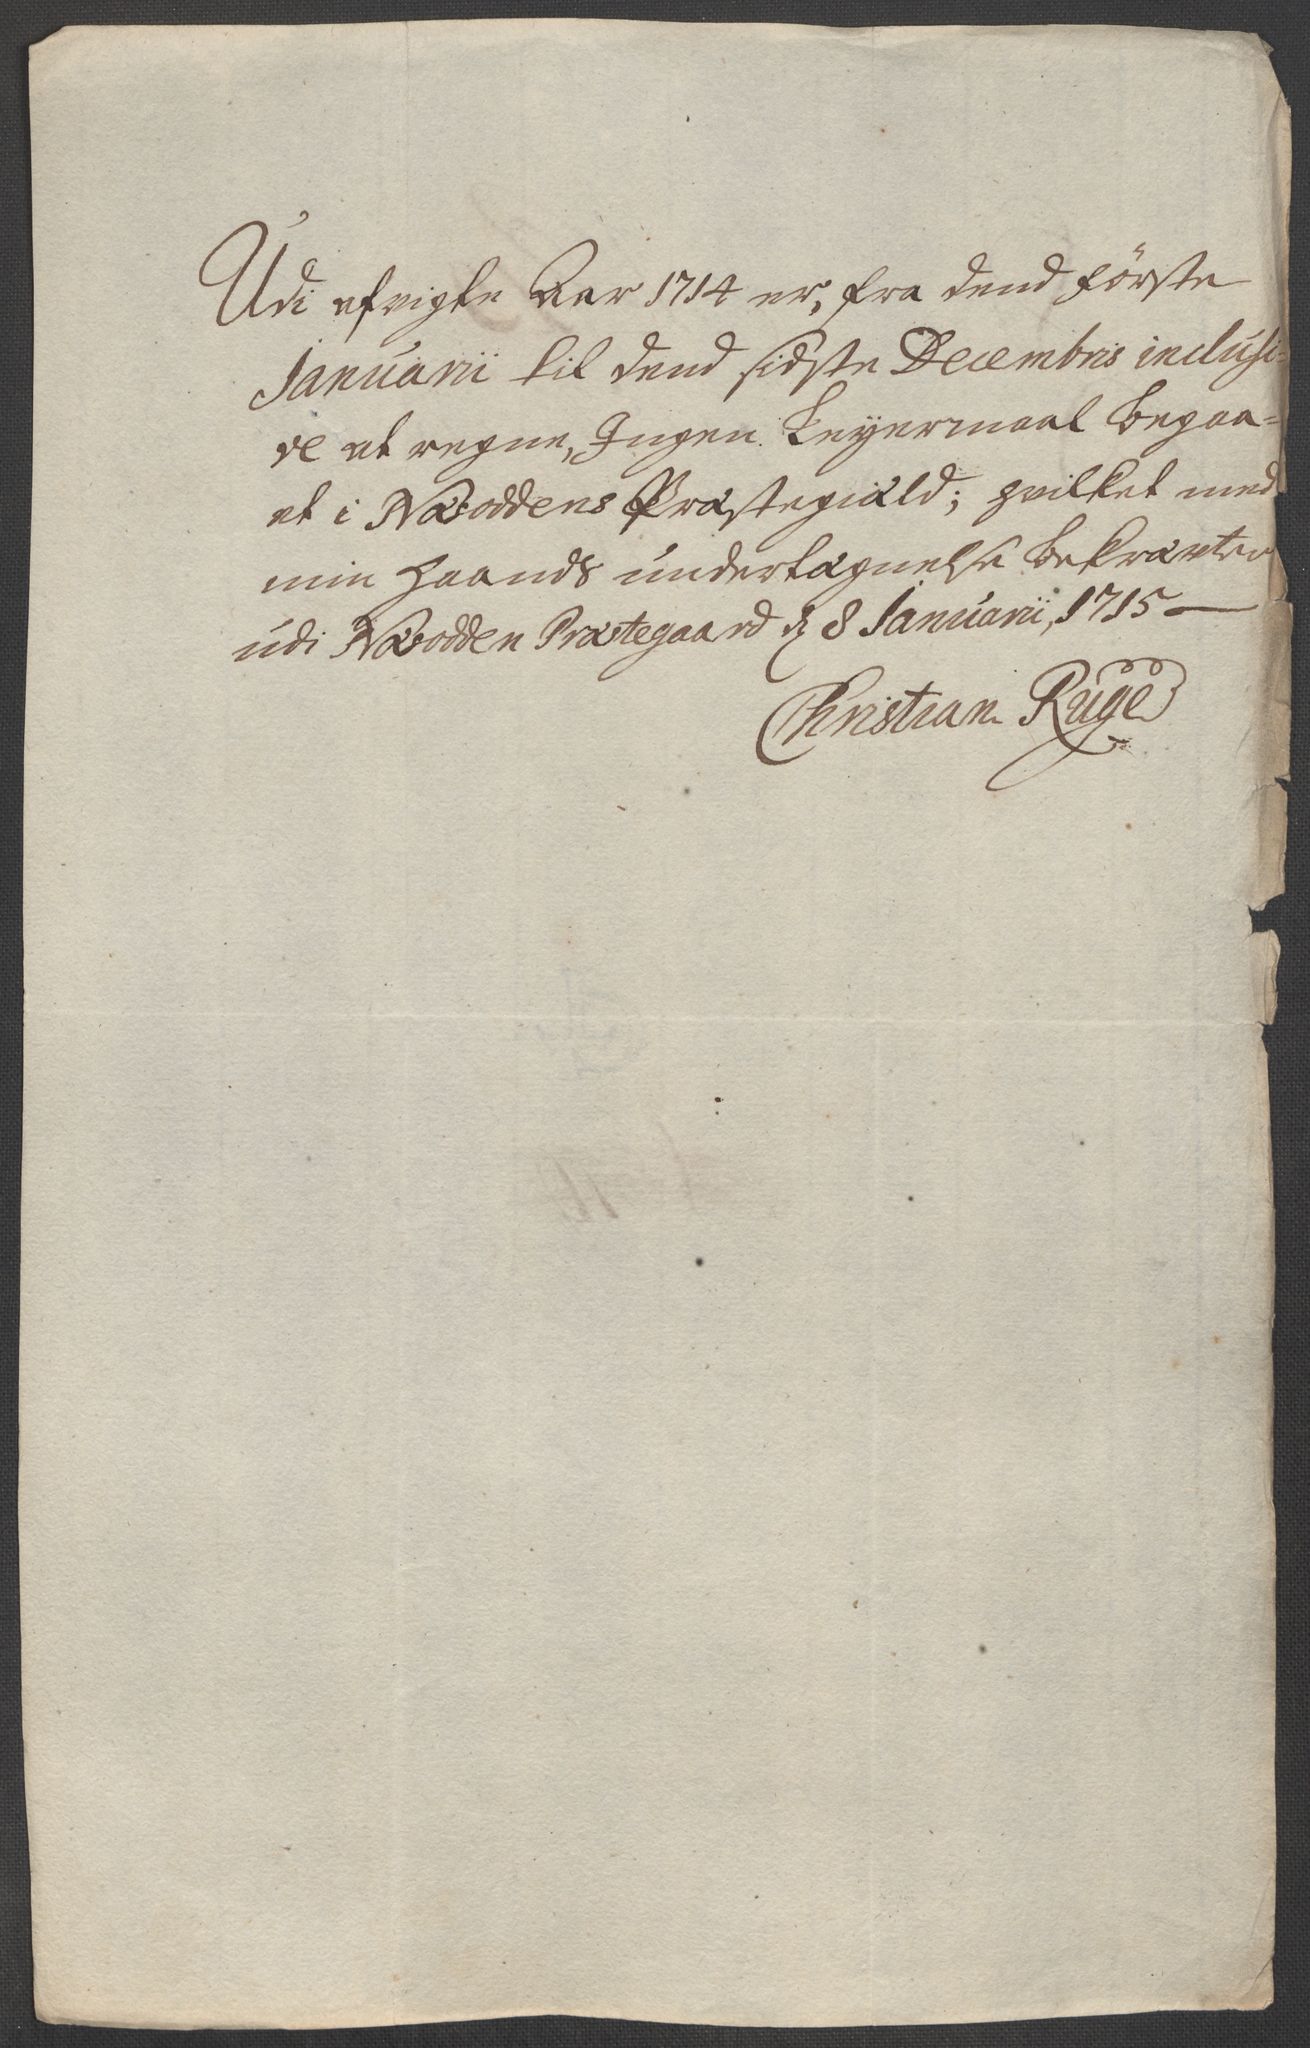 Udi afvigte Aar 1714 er, fra dend förste
Januarii til dend sidste Decembris inclusi=
ve at regne, Ingen Leyermaal begaa=
et i Næsoddens Præstegiæld; hvilket med
min haands undertægnelse bekræfter
udi Næsodden Præstegaard d 8 Januarii, 1715
Christian Ruge